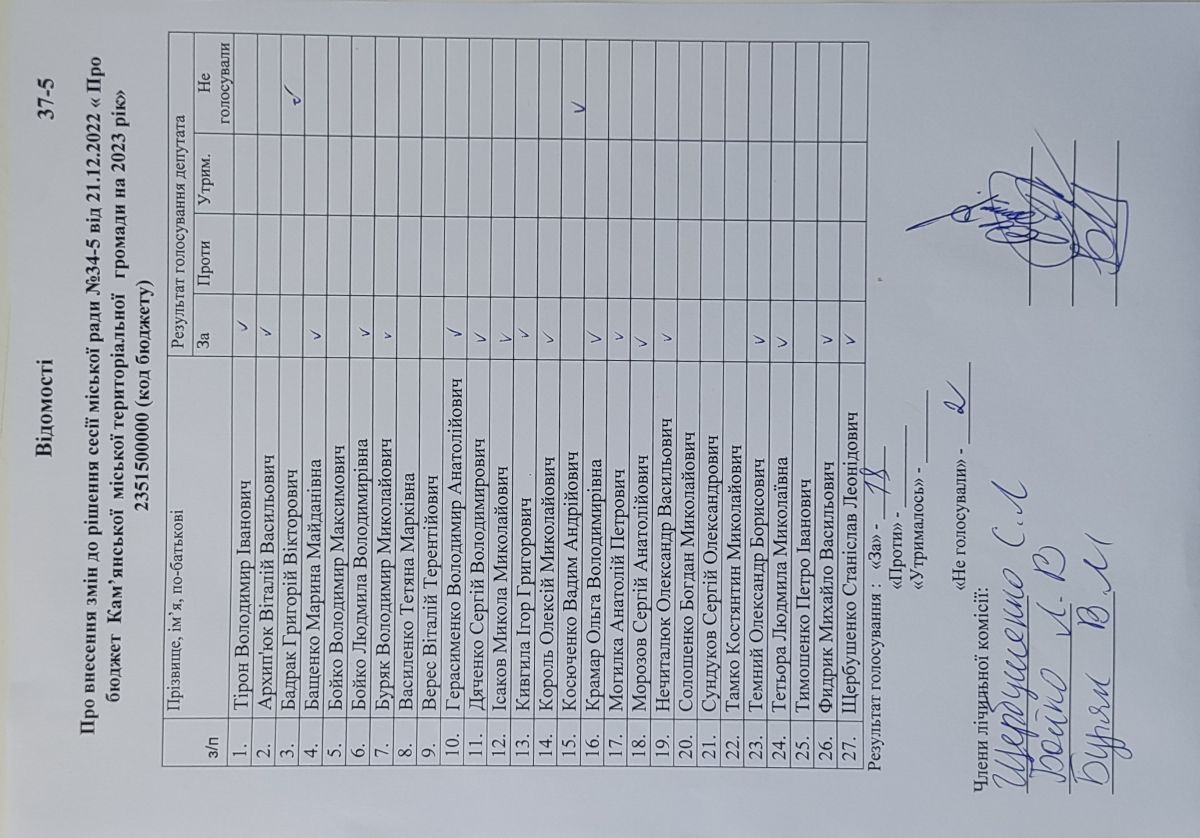 Відомості 37-5
Про внесення змін до рішення сесії міської ради №34-5 від 21.12.2022 « Про
бюджет Кам’янської міської територіальної громади на 2023 рік»
2351500000 (код бюджету)
з/п Прізвище, ім’я, по-батькові Результат голосування депутата
За Проти Утрим. Не голосували
1. Тірон Володимир Іванович ✓
2. Архип'юк Віталій Васильович ✓
3. Бадрак Григорій Вікторович ✓
4. Бащенко Марина Майданівна ✓
5. Бойко Володимир Максимович
6. Бойко Людмила Володимирівна ✓
7. Буряк Володимир Миколайович ✓
8. Василенко Тетяна Марківна
9. Верес Віталій Терентійович
10. Герасименко Володимир Анатолійович ✓
11. Дяченко Сергій Володимирович ✓
12. Ісаков Микола Миколайович ✓
13. Кивгила Ігор Григорович ✓
14. Король Олексій Миколайович ✓
15. Косюченко Вадим Андрійович ✓
16. Крамар Ольга Володимирівна ✓
17. Могилка Анатолій Петрович ✓
18. Морозов Сергій Анатолійович ✓
19. Нечиталюк Олександр Васильович ✓
20. Солошенко Богдан Миколайович
21. Сундуков Сергій Олександрович
22. Тамко Костянтин Миколайович
23. Темний Олександр Борисович ✓
24. Тетьора Людмила Миколаївна ✓
25. Тимошенко Петро Іванович
26. Фидрик Михайло Васильович ✓
27. Щербушенко Станіслав Леонідович ✓
Результат голосування : «За» - 18
«Проти» -
«Утрималось» -
«Не голосували» - 2
Члени лічильної комісії:
Щербушенко С.Л
Бойко Л. В
Буряк В. М